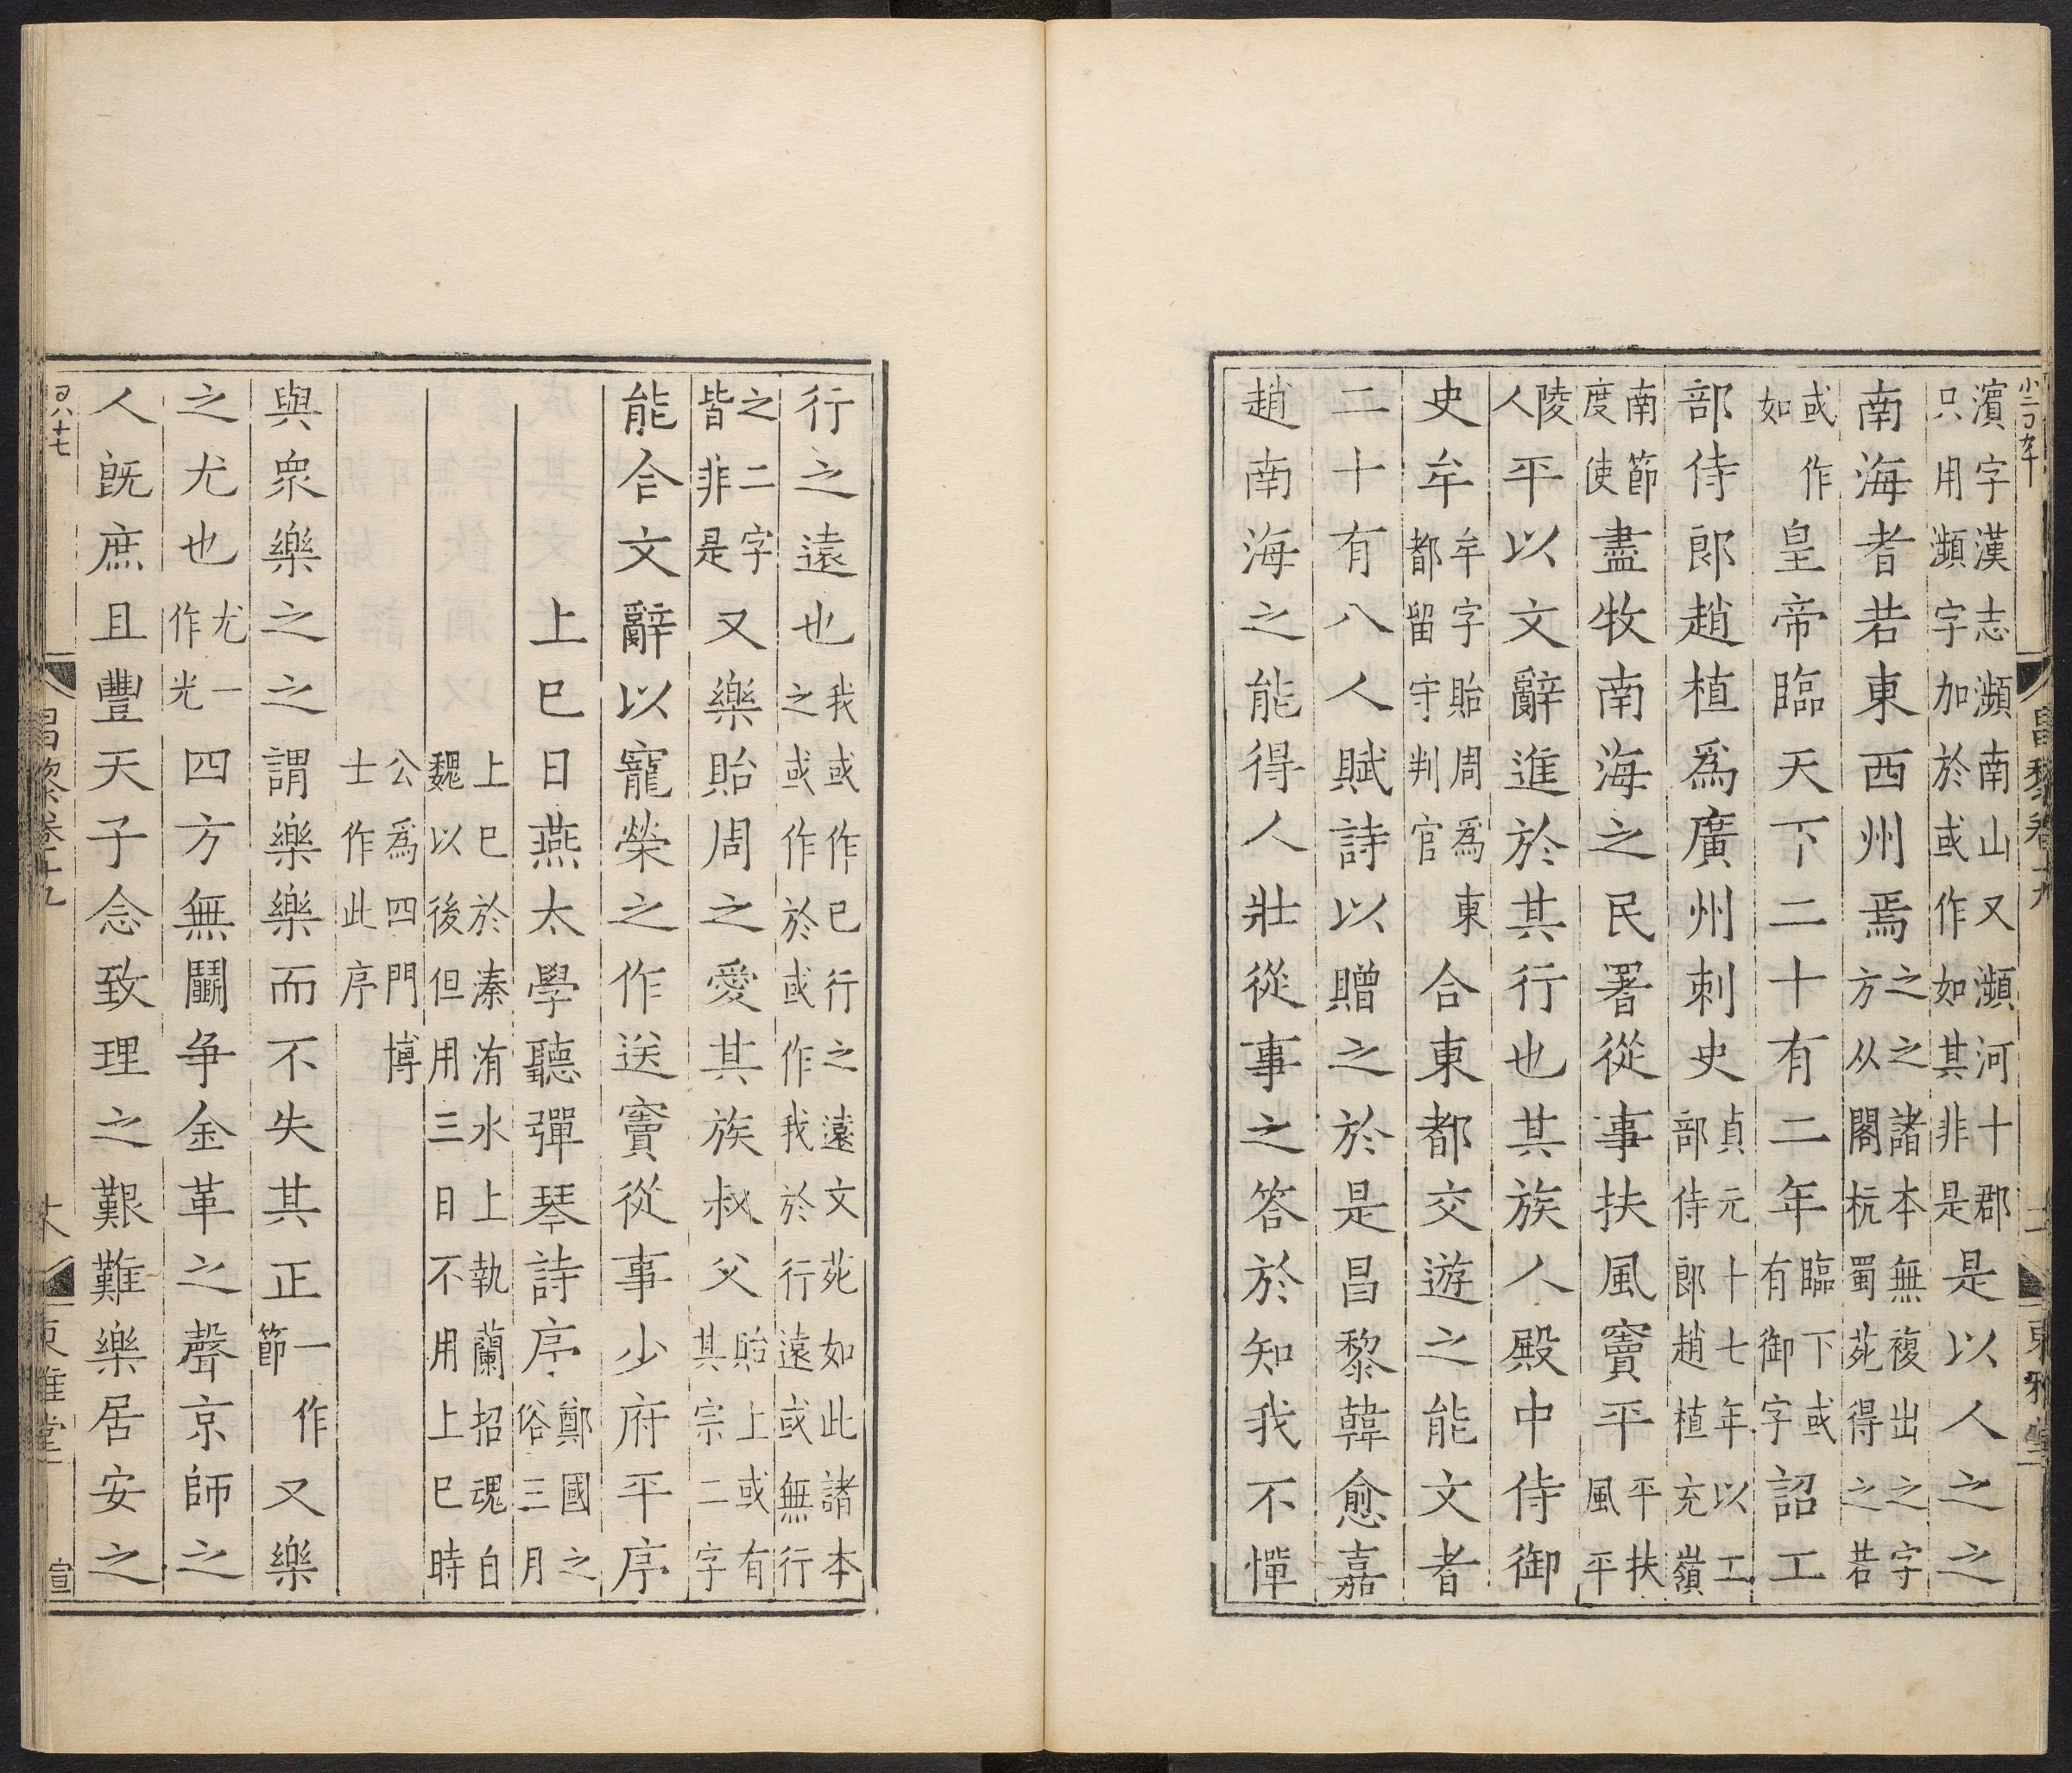 濵字漢志瀕南山又瀕河十郡
只用瀕字加於或作如其非是
是以人之之
南海者若東西州焉
之之諸本無複出之字
方从閣杭蜀苑得之若
或作
如
皇帝臨天下二十有二年
臨下或
有御字
詔工
部侍郎趙植爲廣州刺史
貞元十七年以工
部侍郎趙植充嶺
南節
度使
盡牧南海之民署從事扶風竇平
平扶
風平
陵
人
平以文辭進於其行也其族人殿中侍御
史牟
牟字貽周爲東
都留守判官
合東都交遊之能文者
二十有八人賦詩以贈之於是昌黎韓愈嘉
趙南海之能得人壯從事之答於知我不憚
行之遠也
我或作已行之遠文苑如此諸本
之或作於或作我於行遠或無行
之二字
皆非是
又樂貽周之愛其族叔父
貽上或有
其宗二字
能合文辭以寵榮之作送竇從事少府平序
上巳日燕太學聽彈琴詩序
鄭國之
俗三月
上巳於溱洧水上執蘭招魂自
魏以後但用三日不用上巳時
公爲四門博
士作此序
與衆樂之之謂樂樂而不失其正
一作
節
又樂
之尤也
尤一
作光
四方無鬬争金革之聲京師之
人旣庶且豐天子念致理之艱難樂居安之
昌黎卷十九
東雅堂
宣